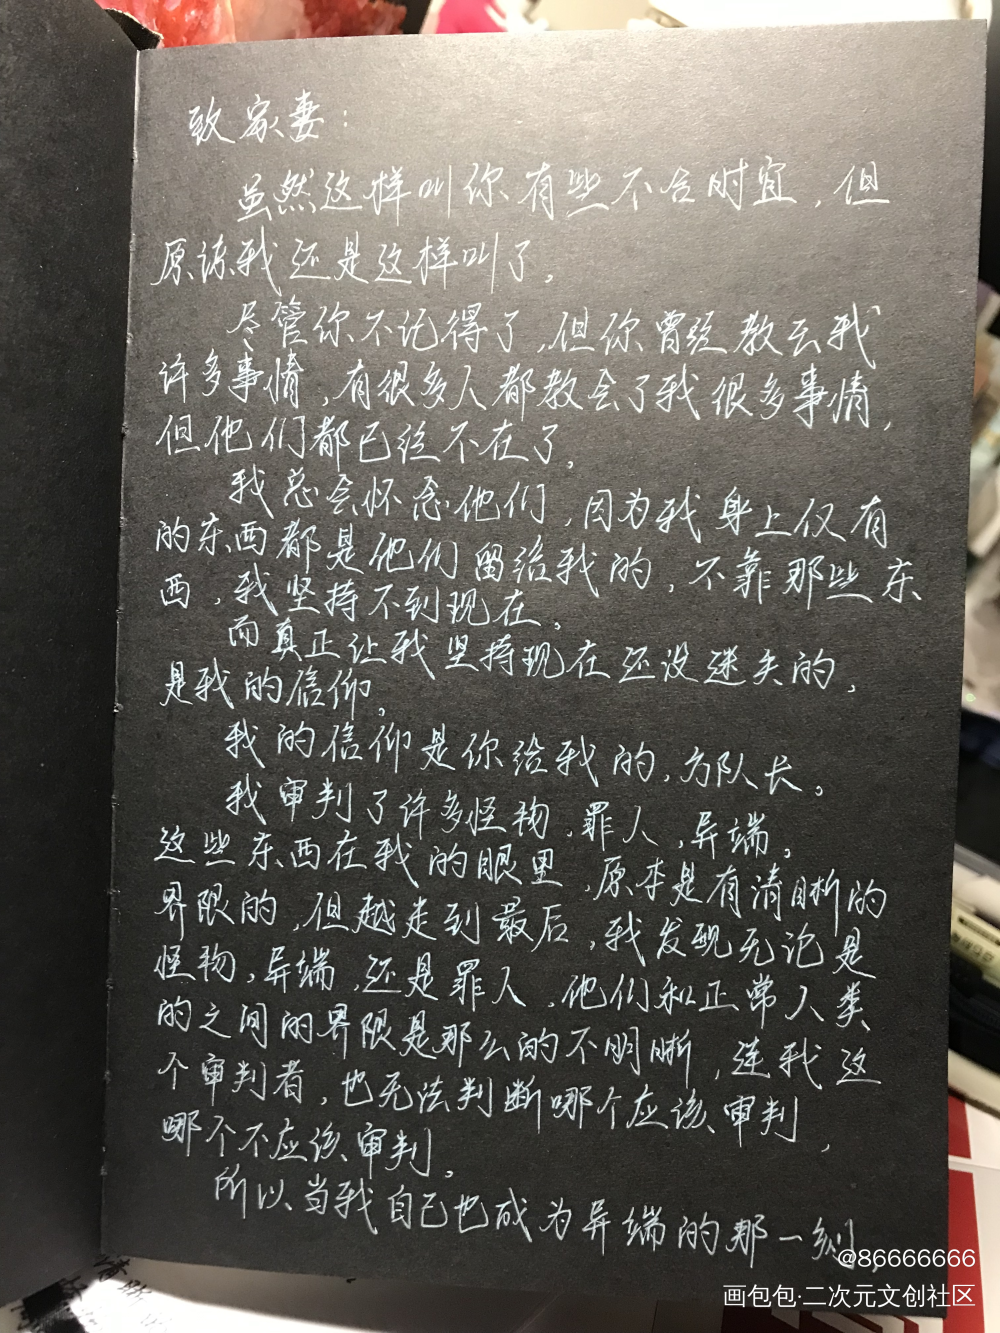 致家妻：
虽然这样叫你有些不合时宜，但
原谅我还是这样叫了。
尽管你不记得了，但你曾经教会我
许多事情，有很多人都教会了我很多事情，
但他们都已经不在了。
我总会怀念他们，因为我身上仅有
的东西都是他们留给我的，不靠那些东
西，我坚持不到现在。
而真正让我坚持现在还没迷失的，
是我的信仰。
我的信仰是你给我的，方队长。
我审判了许多怪物，罪人，异端。
这些东西在我的眼里，原本是有清晰的
界限的，但越走到最后，我发现无论是
怪物，异端，还是罪人，他们和正常人类
的之间的界限是那么的不明晰，连我这
个审判者，也无法判断哪个应该审判，
哪个不应该审判。
所以当我自己也成为异端的那一刻，
@86666666
画包包·二次元文创社区